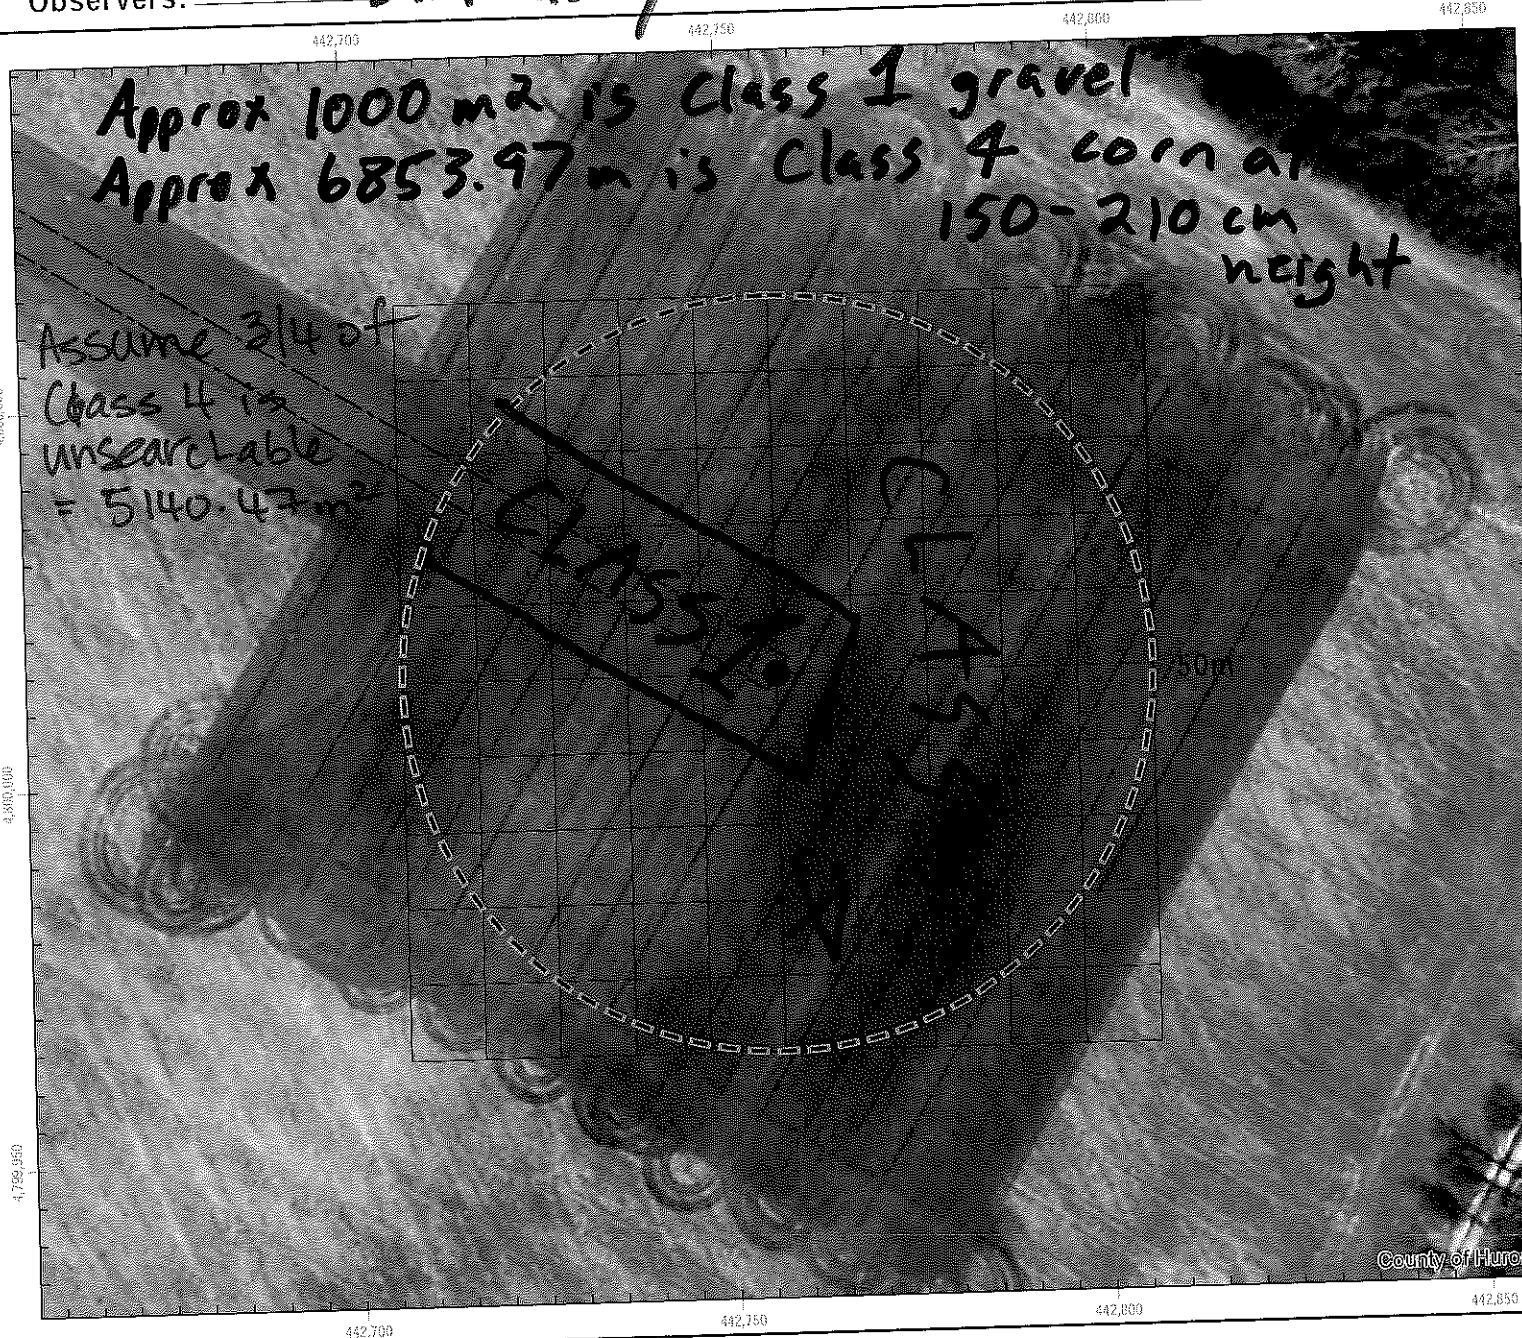 Observers:
442,700 442,750 442,800 442,850
Approx 1000 m² is Class 1 gravel
Approx 6853.97 m is Class 4 corn at
150-210 cm
height
Assume 3/4 of
Class 4 is
unsearchable
= 5140.47 m²
CLASS 1
CLASS 4
50m
4,800,000
4,799,950
County of Huro
442,700 442,750 442,800 442,850